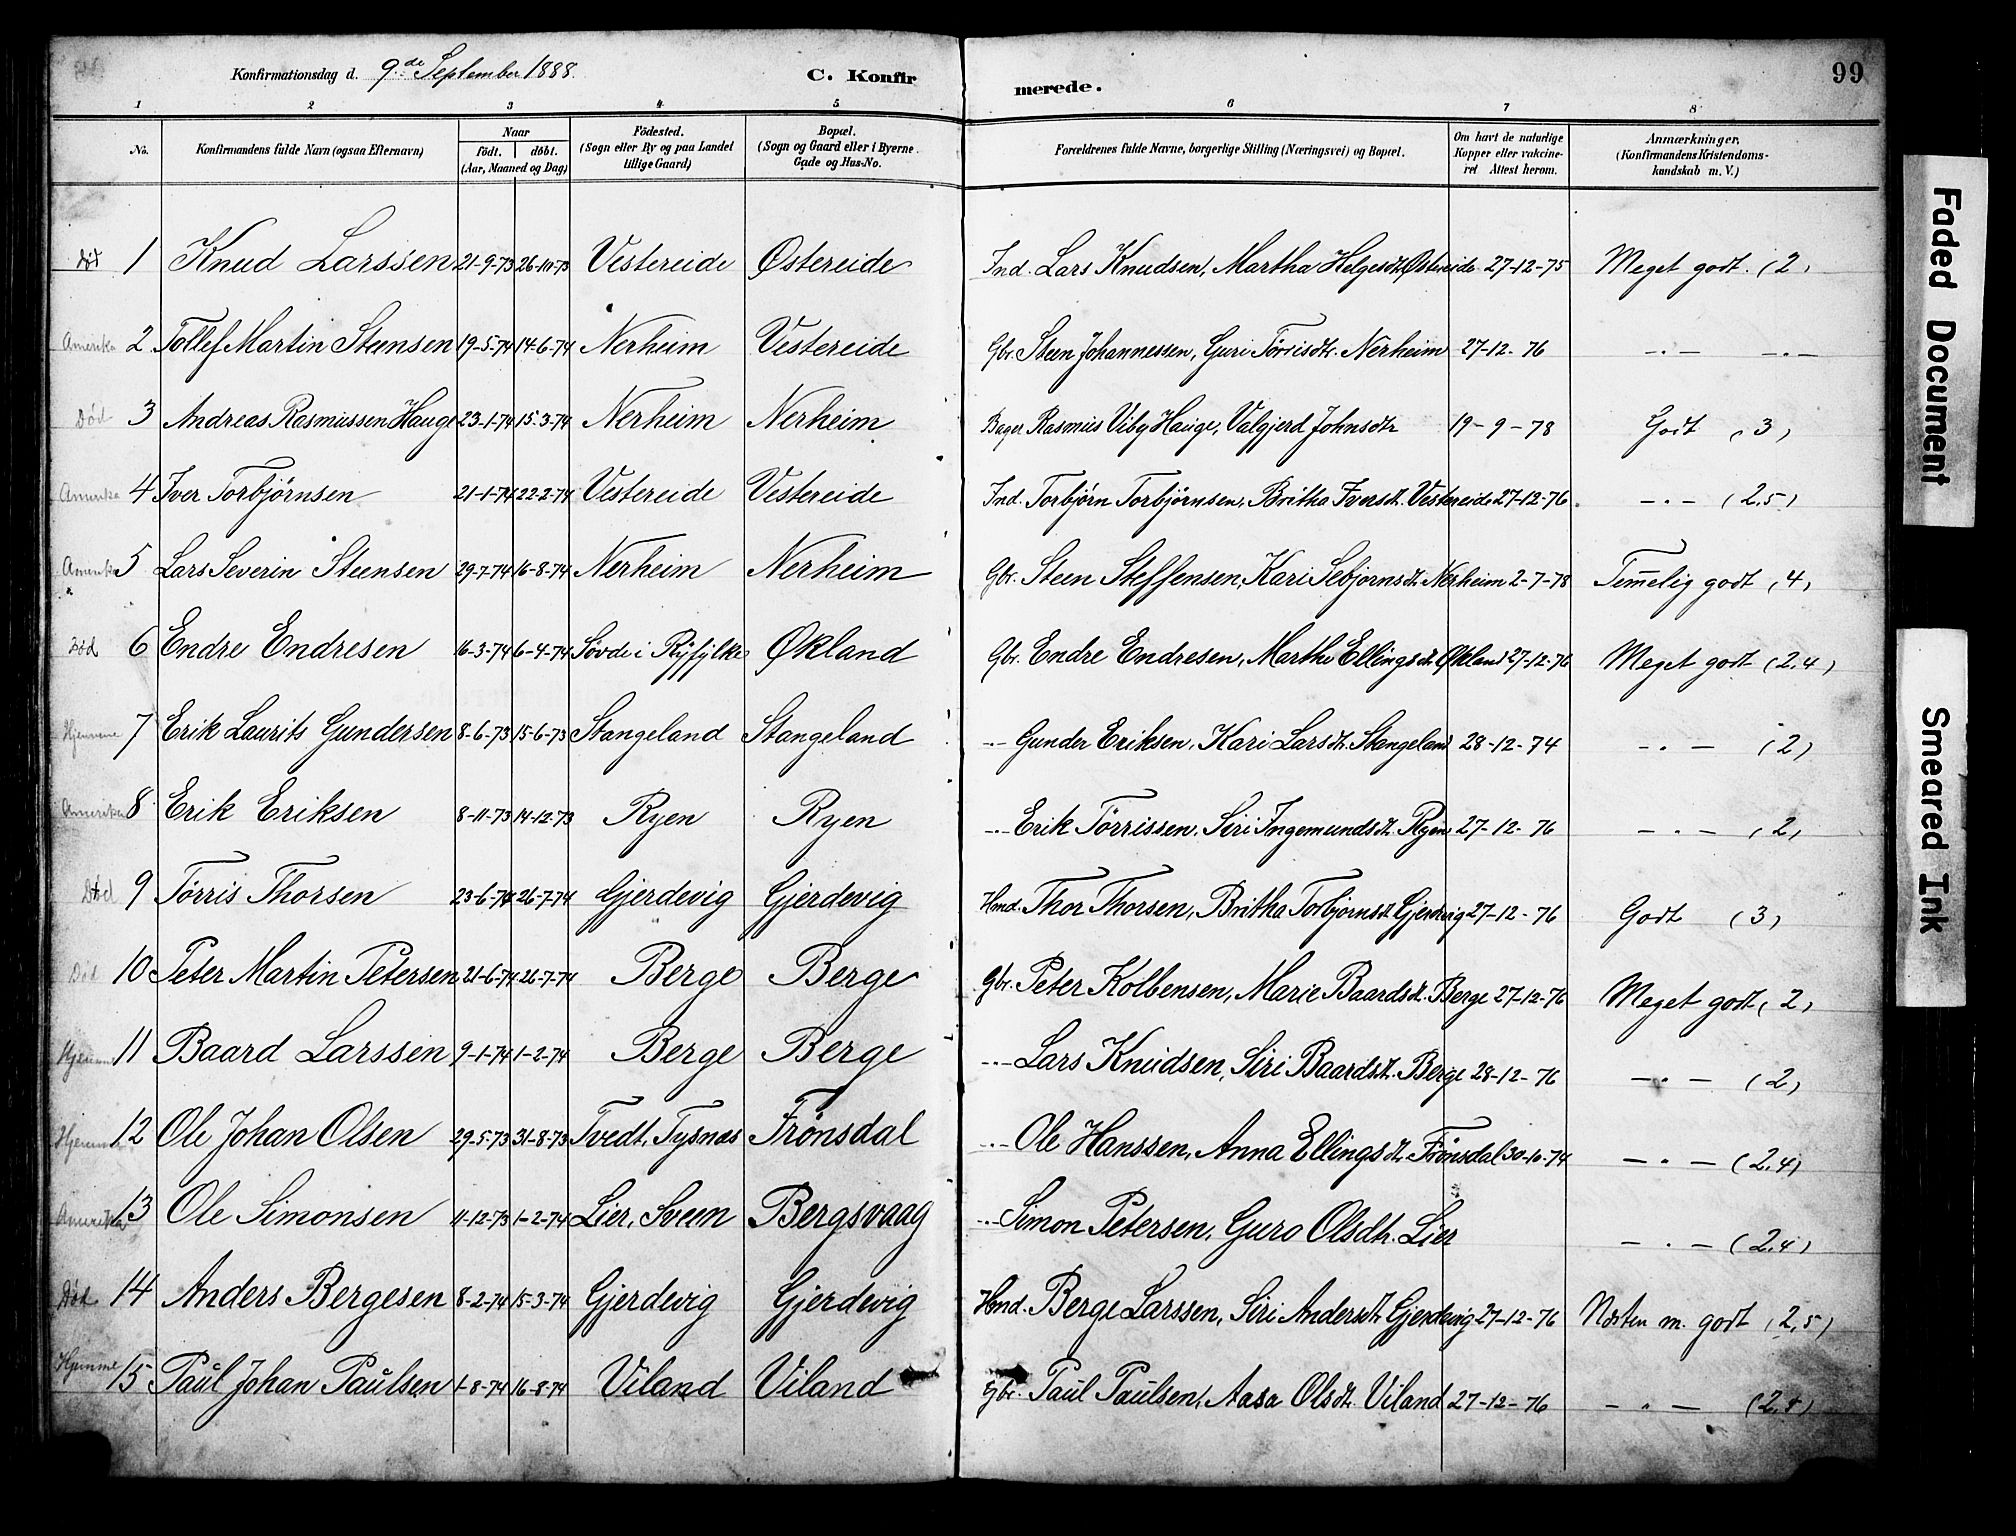 Konfirmationsdag d. 9de September 1888.
C. Konfirmerede.
99
1 2 3 4 5 6 7 8
No.
Konfirmandens fulde Navn (ogsaa Efternavn)
Naar
födt. döbt.
(Aar, Maaned og Dag)
Födested.
(Sogn eller By og paa Landet
tillige Gaard)
Bopæl.
(Sogn og Gaard eller i Byerne
Gade og Hus-No.
Forældrenes fulde Navne, borgerlige Stilling (Næringsvei) og Bopæl.
Om havt de naturlige
Kopper eller vakcine-
ret Attest herom.
Anmærkninger.
(Konfirmandens Kristendoms-
kundskab m. V.)
Död 1 Knud Larssen 21-9-73 26-10-73 Vestereide Østereide Ind. Lars Knudsen, Martha Helgesdtr Østereide 27-12-75 Meget godt. (2)
Amerika 2 Tollef Martin Steensen 19-5-74 14-6-74 Nerheim Vestereide Gbr. Steen Johannessen, Guri Törrisdtr. Nerheim 27-12-76 -.- -.-
Död 3 Andreas Rasmussen Hauge 23-1-74 15-3-74 Nerheim Nerheim Bager Rasmus Viby Hauge, Valgjerd Johnsdtr 19-9-78 Godt (3)
Amerika 4 Iver Torbjörnsen 21-1-74 22-2-74 Vestereide Vestereide Ind. Torbjörn Torbjörnsen, Britha Iversdt. Vestereide 27-12-76. -.- (2,5)
Amerika 5 Lars Severin Steensen 29-7-74 16-8-74 Nerheim Nerheim Gbr. Steen Steffensen, Kari Sebjornsdt. Nerheim 2-7-78 Tem̄elig godt (4)
Död 6 Endre Endresen 16-3-74 6-4-74 Søvde i Ryfylke Økland Gbr. Endre Endresen, Marthe Ellingsdt. Økland 27-12-76 Meget godt (2,4)
Hjemme 7 Erik Laurits Gundersen 8-6-73 15-6-73 Stangeland Stangeland -..- Gunder Eriksen, Kari Larsdt. Stangeland 28-12-74 -.- (2)
Amerika 8 Erik Eriksen 8-11-73 14-12-73 Ryen Ryen -..- Erik Törrissen, Siri Ingemundsdt. Ryen 27-12-76 -.- (2)
Död 9 Törris Thorsen 23-6-74 26-7-74 Gjerdevig Gjerdevig Hmd. Thor Thorsen, Britha Torbjornsdt Gjerdevig 27-12-76 Godt (3)
Död 10 Peter Martin Petersen 21-6-74 26-7-74 Berge Berge Gbr. Peter Kolbensen, Marie Baardsdt. Berge 27-12-76 Meget godt (2)
Hjemme 11 Baard Larssen 9-1-74 1-2-74 Berge Berge -..- Lars Knudsen, Siri Baardsdt. Berge 28-12-76 -.- (2)
Hjemme 12 Ole Johan Olsen 29-5-73 31-8-73 Tvedt, Tysnæs Frönsdal -..- Ole Hanssen, Anna Ellingsdt. Frönsdal 30-10-74 -.- (2,4)
Amerika 13 Ole Simonsen 11-12-73 1-2-74 Lier, Sveen Bergsvaag -..- Simon Petersen, Guro Olsdtr. Lier -.- (2,4)
Död 14 Anders Bergesen 8-2-74 15-3-74 Gjerdevig Gjerdevig Hmd. Berge Larssen, Siri Andersdt Gjerdevig 27-12-76 Næsten m. godt (2,5)
Hjemme 15 Paul Johan Paulsen 1-8-74 16-8-74 Viland Viland Gbr. Paul Paulsen, Aasa Olsdtr. Viland 27-12-76 -.- (2,5)
Faded Document
Smeared Ink